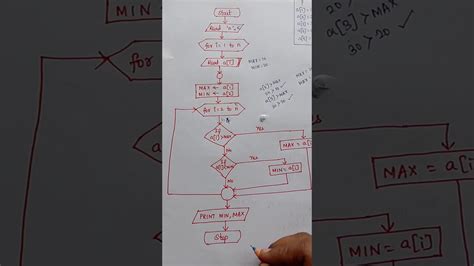 Start
Read 'n'
for i = 1 to n
Read a[i]
MAX ← a[1]
MIN ← a[1]
for i = 2 to n
If
a[i]>MAX
Yes
No
MAX = a[i]
If
Yes
No
MIN = a[i]
PRINT MIN, MAX
Stop
for
MAX = a[i]
MIN = a[i]
a[3] > MAX
30 > 20